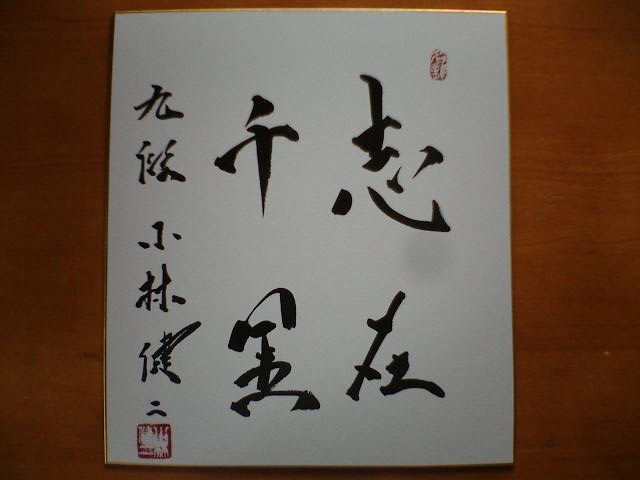 志在
千里
九段 小林健二